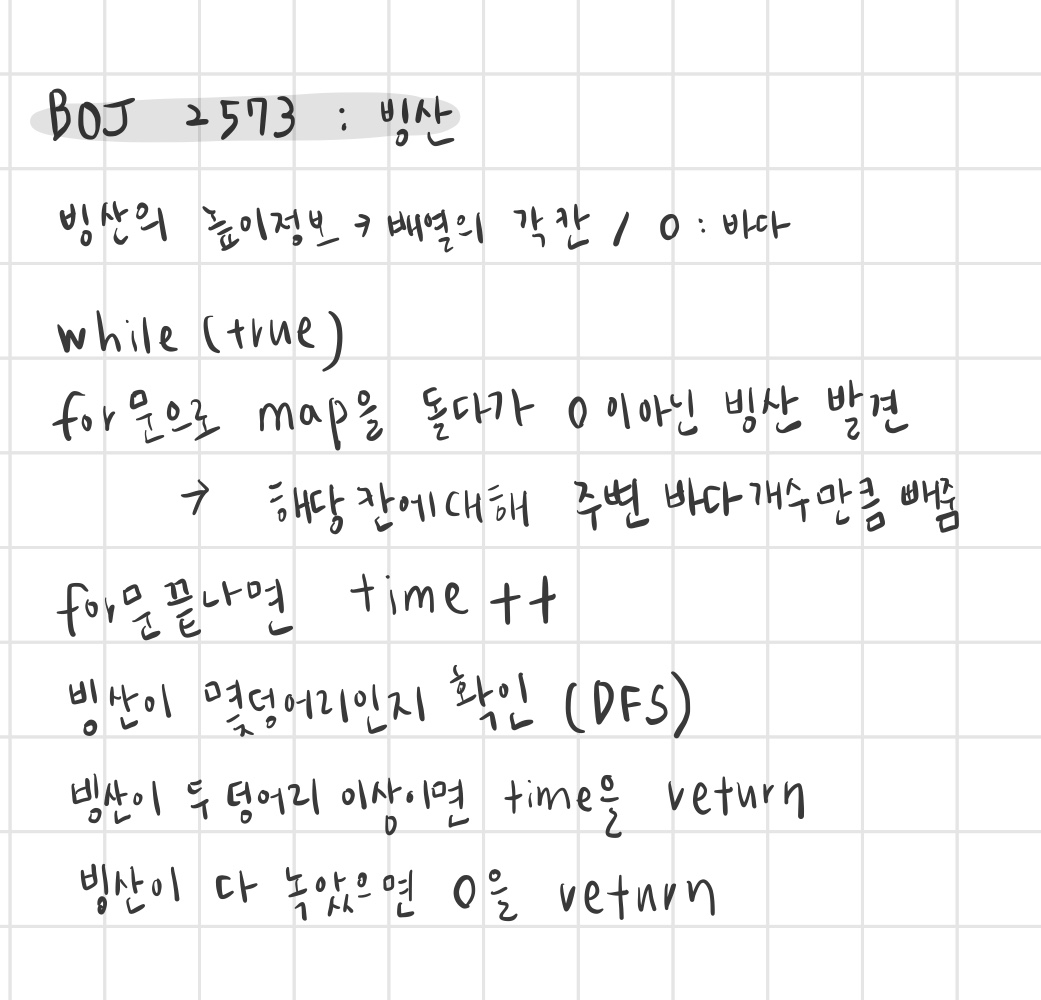 BOJ 2573 : 빙산
빙산의 높이정보 → 배열의 각 칸 / 0 : 바다
while (true)
for문으로 map을 돌다가 0이아닌 빙산 발견
→ 해당 칸에대해 주변 바다개수만큼 빼줌
for문끝나면 time ++
빙산이 몇덩어리인지 확인 (DFS)
빙산이 두 덩어리 이상이면 time을 return
빙산이 다 녹았으면 0을 return